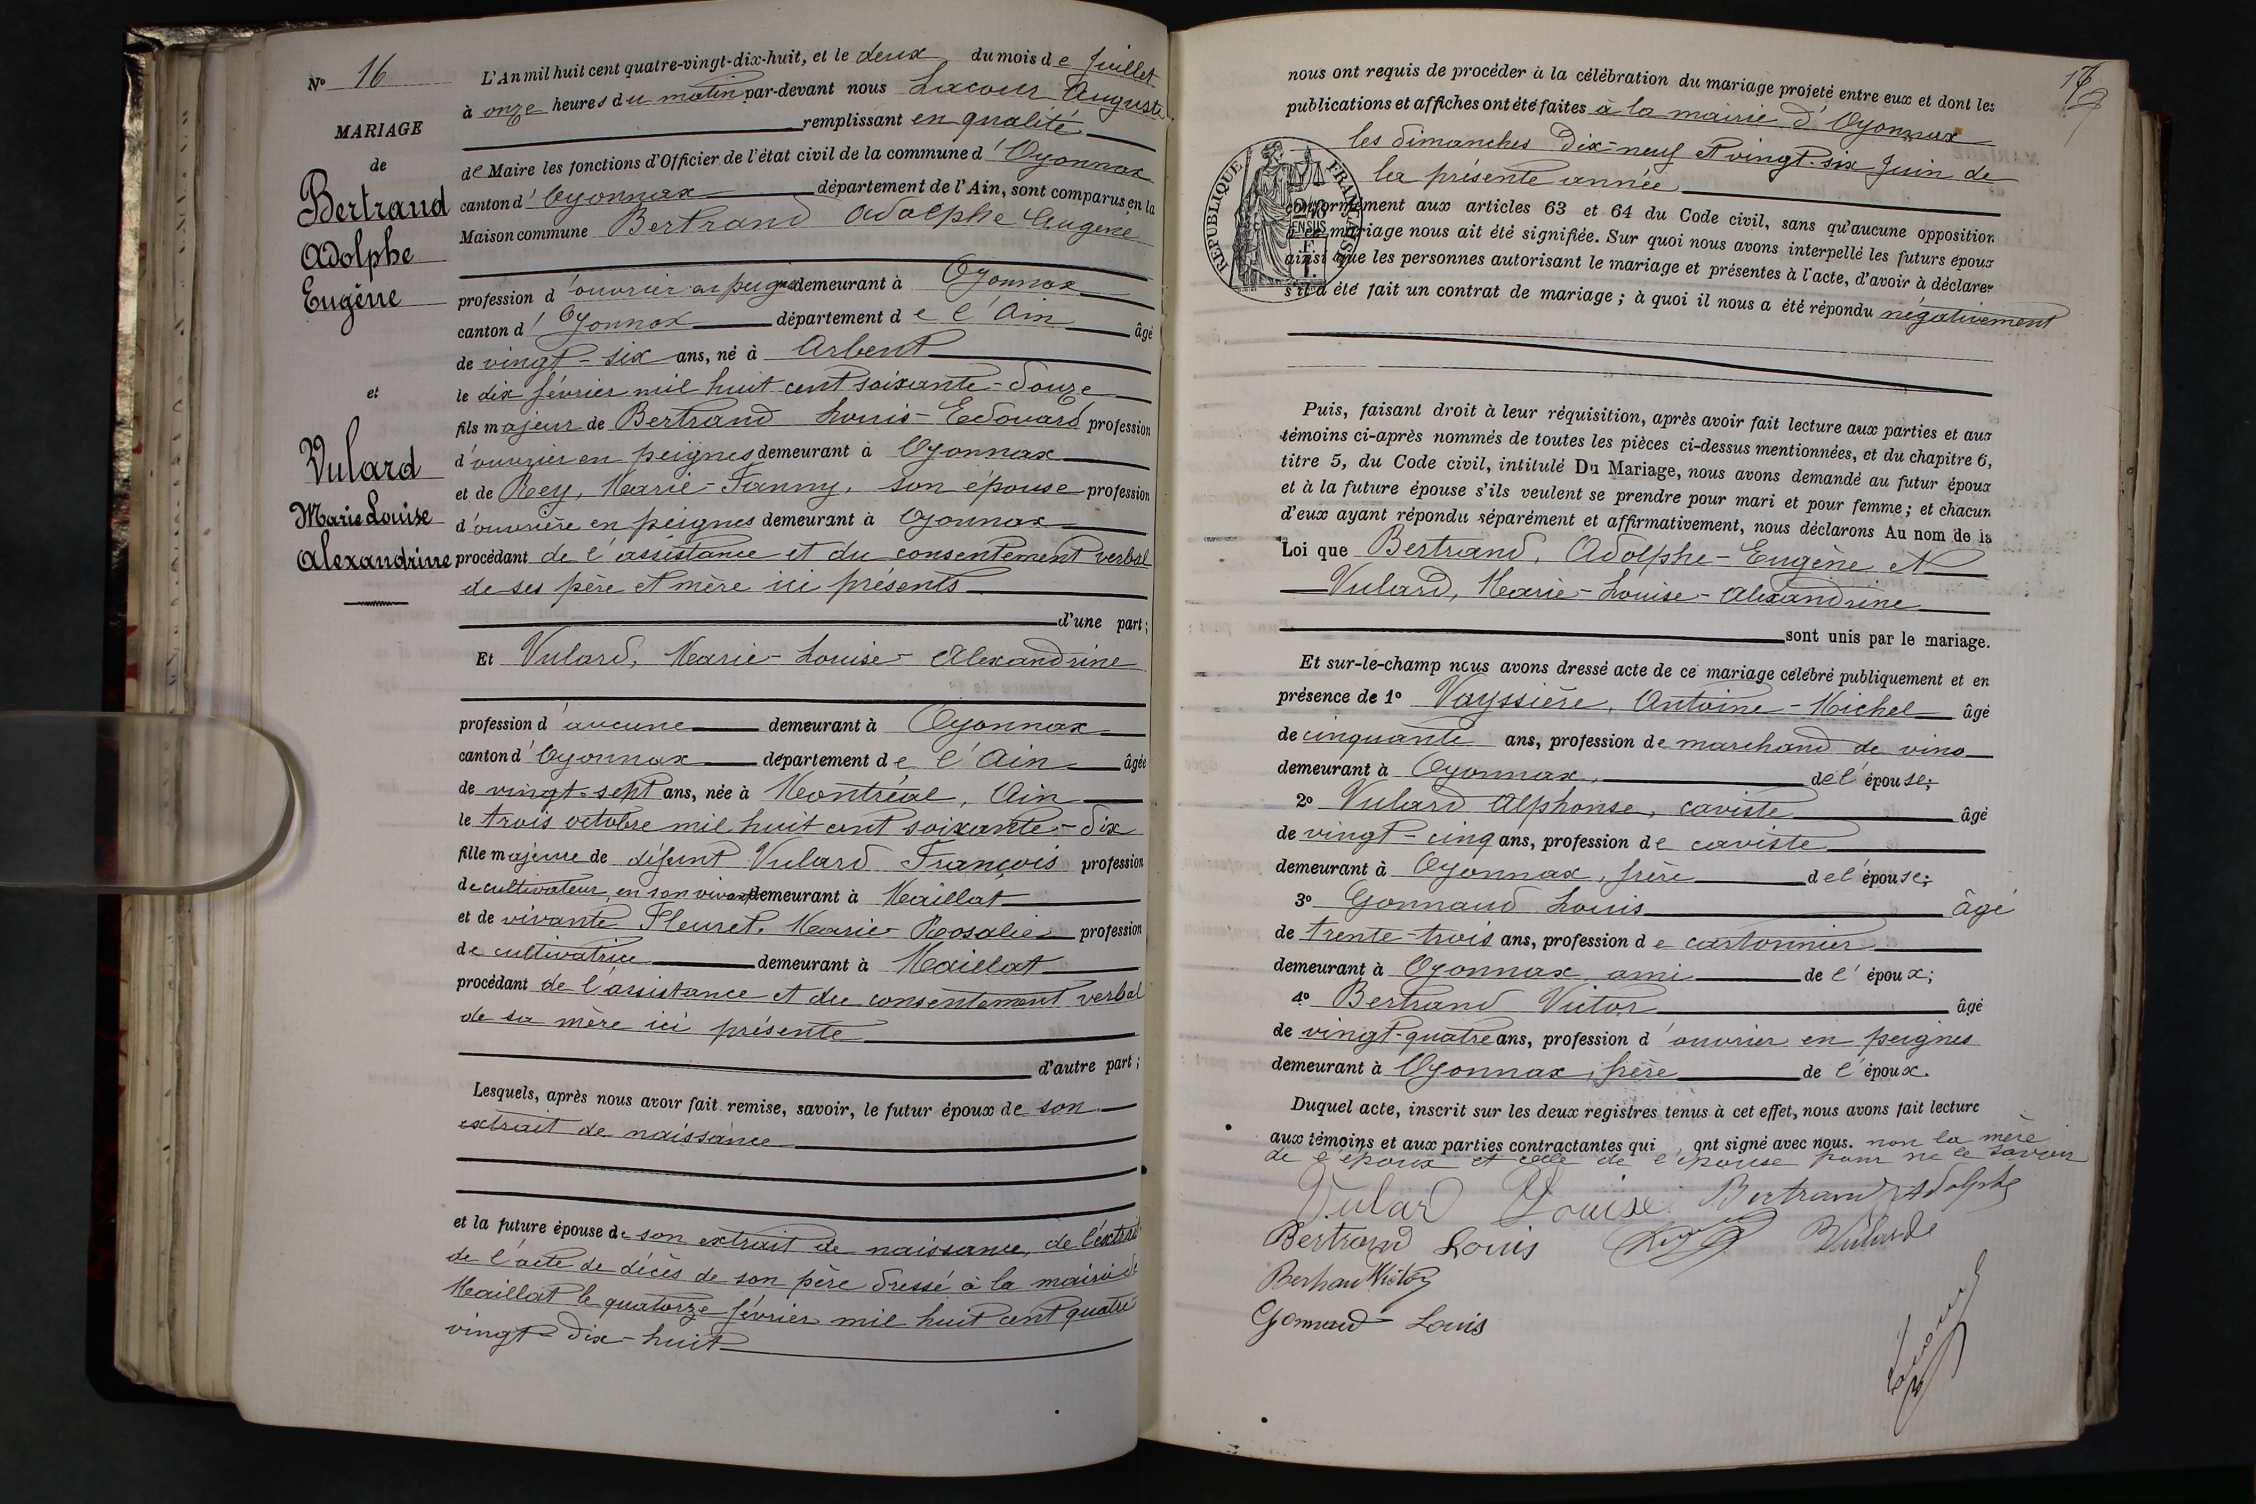 Nº 16
MARIAGE
de
Bertrand
Adolphe
Eugène
et
Vulard
Marie Louise
Alexandrine
L'An mil huit cent quatre-vingt-dix-huit, et le deux du mois de Juillet
à onze heures du matin par-devant nous Lacour Auguste
remplissant en qualité
de Maire les fonctions d'Officier de l'état civil de la commune d'Oyonnax
canton d'Oyonnax département de l'Ain, sont comparus en la
Maison commune Bertrand Adolphe Eugène
profession d'ouvrier en peignes demeurant à Oyonnax
canton d'Oyonnax département de l'Ain âgé
de vingt-six ans, né à Arbent
le dix février mil huit cent soixante-douze
fils majeur de Bertrand Louis-Edouard profession
d'ouvrier en peignes demeurant à Oyonnax
et de Rey, Marie-Fanny, son épouse profession
d'ouvrière en peignes demeurant à Oyonnax
procédant de l'assistance et du consentement verbal
de ses père et mère ici présents
d'une part;
Et Vulard, Marie-Louise-Alexandrine
profession d'aucune demeurant à Oyonnax
canton d'Oyonnax département de l'Ain âgée
de vingt-sept ans, née à Montréal, Ain
le trois octobre mil huit cent soixante-dix
fille majeure de défunt Vulard François profession
de cultivateur, en son vivant demeurant à Maillat
et de vivante Fleuret, Marie-Rosalie profession
de cultivatrice demeurant à Maillat
procédant de l'assistance et du consentement verbal
de sa mère ici présente
d'autre part;
Lesquels, après nous avoir fait remise, savoir, le futur époux de son
extrait de naissance
et la future épouse de son extrait de naissance, de l'extrait
de l'acte de décès de son père dressé à la mairie de
Maillat le quatorze février mil huit cent quatre
vingt-dix-huit
nous ont requis de procéder à la célébration du mariage projeté entre eux et dont les
publications et affiches ont été faites à la mairie d'Oyonnax
les dimanches dix-neuf et vingt-six Juin de
la présente année
RÉPUBLIQUE FRANÇAISE
conformément aux articles 63 et 64 du Code civil, sans qu'aucune opposition
à ce mariage nous ait été signifiée. Sur quoi nous avons interpellé les futurs époux
ainsi que les personnes autorisant le mariage et présentes à l'acte, d'avoir à déclarer
s'il a été fait un contrat de mariage; à quoi il nous a été répondu négativement
Puis, faisant droit à leur réquisition, après avoir fait lecture aux parties et aux
témoins ci-après nommés de toutes les pièces ci-dessus mentionnées, et du chapitre 6,
titre 5, du Code civil, intitulé Du Mariage, nous avons demandé au futur époux
et à la future épouse s'ils veulent se prendre pour mari et pour femme; et chacun
d'eux ayant répondu séparément et affirmativement, nous déclarons Au nom de la
Loi que Bertrand, Adolphe-Eugène et
Vulard, Marie-Louise-Alexandrine
sont unis par le mariage.
Et sur-le-champ nous avons dressé acte de ce mariage célébré publiquement et en
présence de 1º Vayssière, Antoine-Michel âgé
de cinquante ans, profession de marchand de vins
demeurant à Oyonnax, de l'épouse;
2º Vulard Alphonse, caviste âgé
de vingt-cinq ans, profession de caviste
demeurant à Oyonnax, frère de l'épouse;
3º Gonnaud Louis âgé
de trente-trois ans, profession de cartonnier
demeurant à Oyonnax ami de l'époux;
4º Bertrand Victor âgé
de vingt-quatre ans, profession d'ouvrier en peignes
demeurant à Oyonnax, frère de l'époux.
Duquel acte, inscrit sur les deux registres tenus à cet effet, nous avons fait lecture
aux témoins et aux parties contractantes qui ont signé avec nous. non la mère
de l'époux et celle de l'épouse pour ne le savoir
Vulard Louise Bertrand Adolphe
Bertrand Louis
Bertrand Victor
Gonnaud Louis